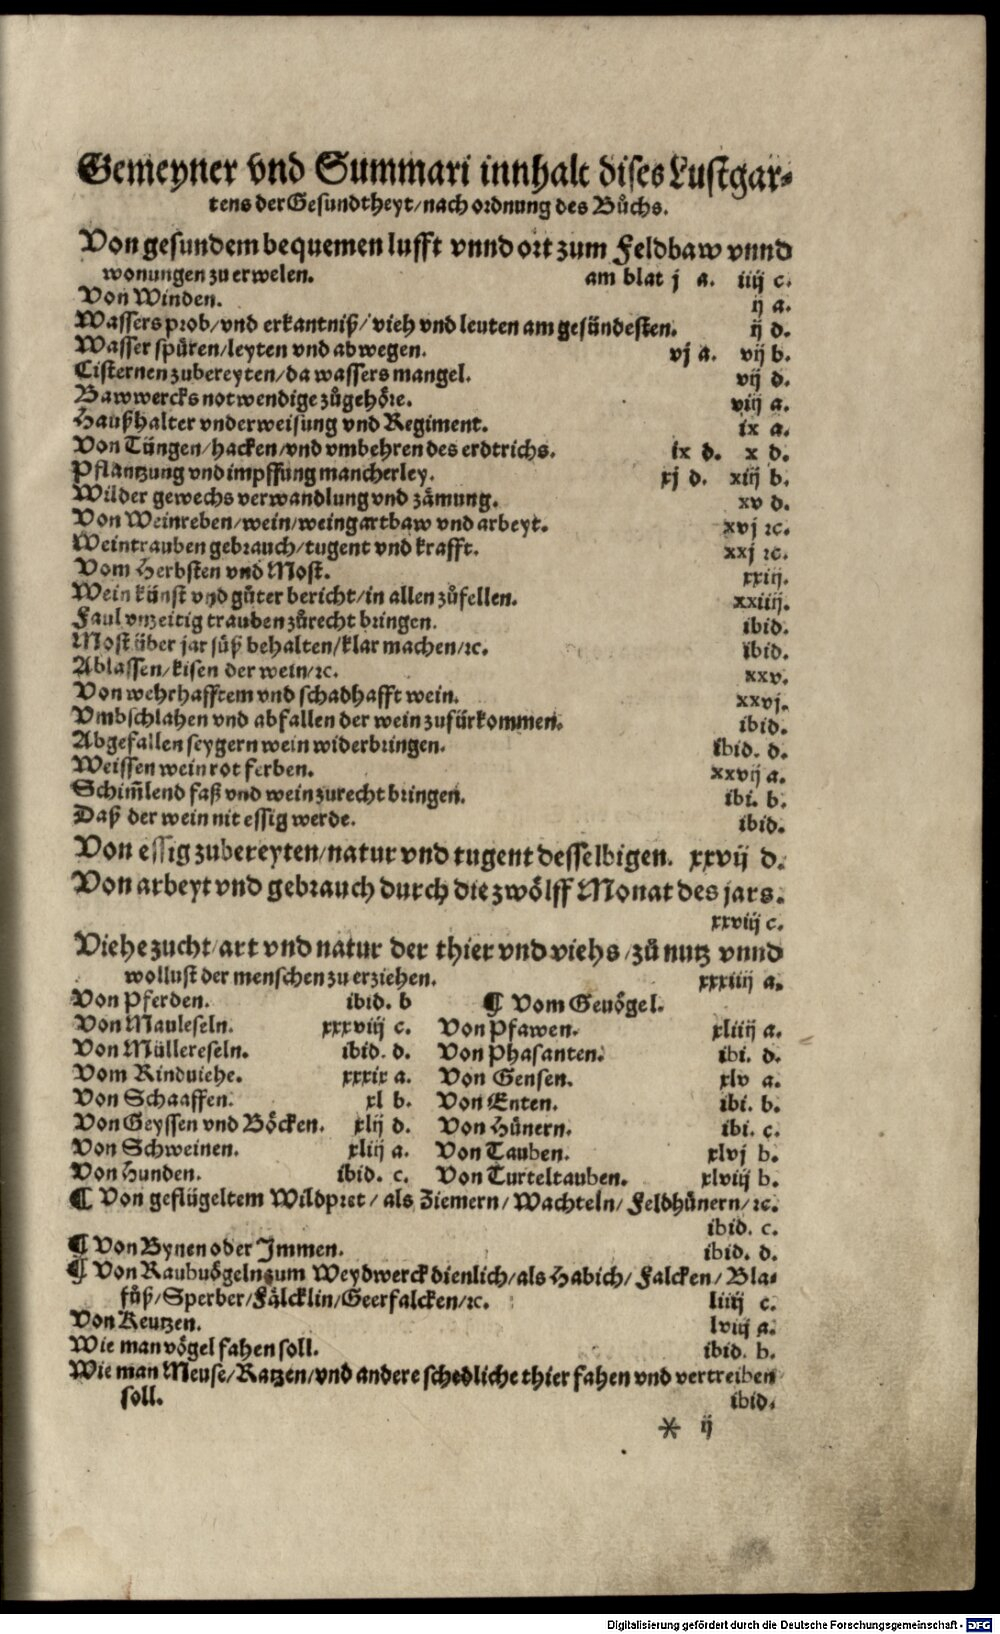 Gemeyner vnd Summari innhalt dises Lustgar-
tens der Gesundtheyt/nach ordnung des Bůchs.
Von gesundem bequemen lufft vnnd ort zum Feldbaw vnnd
wonungen zu erwelen. am blat j a. iiij c.
Von Winden. ij a.
Wassers prob/vnd erkantniß/vieh vnd leuten am gesündesten. ij d.
Wasser spüren/leyten vnd abwegen. vj a. vij b.
Cisternen zubereyten/da wassers mangel. vij d.
Bawwercks notwendige zůgehöre. viij a.
Haußhalter vnderweisung vnd Regiment. ix a.
Von Tüngen/hacken/vnd vmbkehren des erdtrichs. ix d. x d.
Pflantzung vnd impffung mancherley. xj d. xiij b.
Wilder gewechs verwandlung vnd zämung. xv d.
Von Weinreben/wein/weingartbaw vnd arbeyt. xvj ꝛc.
Weintrauben gebrauch/tugent vnd krafft. xxj ꝛc.
Vom Herbsten vnd Most. xxiij.
Wein künst vnd gůter bericht/in allen zůfellen. xxiiij.
Faul vnzeitig trauben zůrecht bringen. ibid.
Most über jar süß behalten/klar machen/ꝛc. ibid.
Ablassen/kisen der wein/ꝛc. xxv.
Von wehrhafftem vnd schadhafft wein. xxvj.
Vmbschlahen vnd abfallen der wein zufürkommen. ibid.
Abgefallen seygern wein widerbringen. ibid. d.
Weissen wein rot ferben. xxvij a.
Schim̃lend faß vnd wein zurecht bringen. ibi. b.
Daß der wein nit essig werde. ibid.
Von essig zubereyten/natur vnd tugent desselbigen. xxvij d.
Von arbeyt vnd gebrauch durch die zwölff Monat des jars.
xxviij c.
Viehe zucht/art vnd natur der thier vnd viehs/zů nutz vnnd
wollust der menschen zu erziehen. xxxiiij a.
Von Pferden. ibid. b
Von Mauleseln. xxxviij c.
Von Müllereseln. ibid. d.
Vom Rinduiehe. xxxix a.
Von Schaaffen. xl b.
Von Geyssen vnd Böcken. xlij d.
Von Schweinen. xliij a.
Von Hunden. ibid. c.
¶ Vom Geuögel.
Von Pfawen. xliiij a.
Von Phasanten. ibi. d.
Von Gensen. xlv a.
Von Enten. ibi. b.
Von Hünern. ibi. c.
Von Tauben. xlvj b.
Von Turteltauben. xlviij b.
¶ Von geflügeltem Wildpret/als Ziemern/Wachteln/Feldhünern/ꝛc.
ibid. c.
¶ Von Bynen oder Immen. ibid. d.
¶ Von Raubuögeln zum Weydwerck dienlich/als Habich/Falcken/Bla-
fůß/Sperber/Fälcklin/Geerfalcken/ꝛc. liiij c.
Von Keutzen. lviij a.
Wie man vögel fahen soll. ibid. b.
Wie man Meuse/Ratzen/vnd andere schedliche thier fahen vnd vertreiben
soll. ibid.
* ij
Digitalisierung gefördert durch die Deutsche Forschungsgemeinschaft - DFG